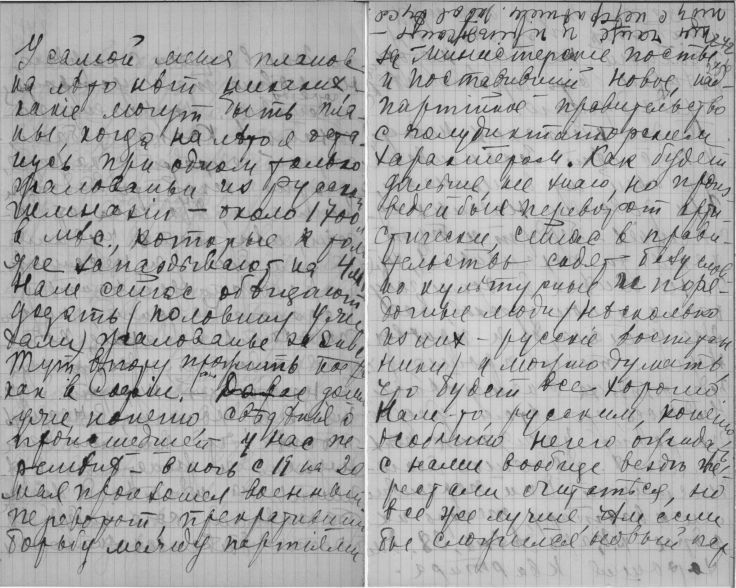 У самой меня планов
на лѣто нѣт никаких -
какiе могут быть пла-
ны, когда на лѣтоя оста-
нусь при одном только
жалованьи из Русской
гимназiи - около 1700
в мѣс., которые к тому
же запаздывают на 4 м.
Нам сейчас обѣщают
додать (половину учи
тут впору прожить
как в
лучiе конечно свѣдѣнiе о
происшедшем у нас пе-
ремѣнѣ - в ночь с 19 на 20
мая произошел военный
переворот, прекративший
борьбу между партiями
за министерскiе посты
и поставивший новое, над-
партiйное правительство
с полудиктаторским
характером. Как будет
дальше, не знаю, но произ
веден был переворот арти
стически, сейчас в прави-
тельствѣ сидят безуслов
но культурные и поря-
дочные люди (нѣсколько
из них - русскiе воспитан
ники) и можно думать,
что будет все хорошо.
Нам-то, русским, конечно
особенно нечего ожидать,
с нами вообще вездѣ пе-
рестали считаться, но
все же лучше, чѣм если
бы сложился новый пар-